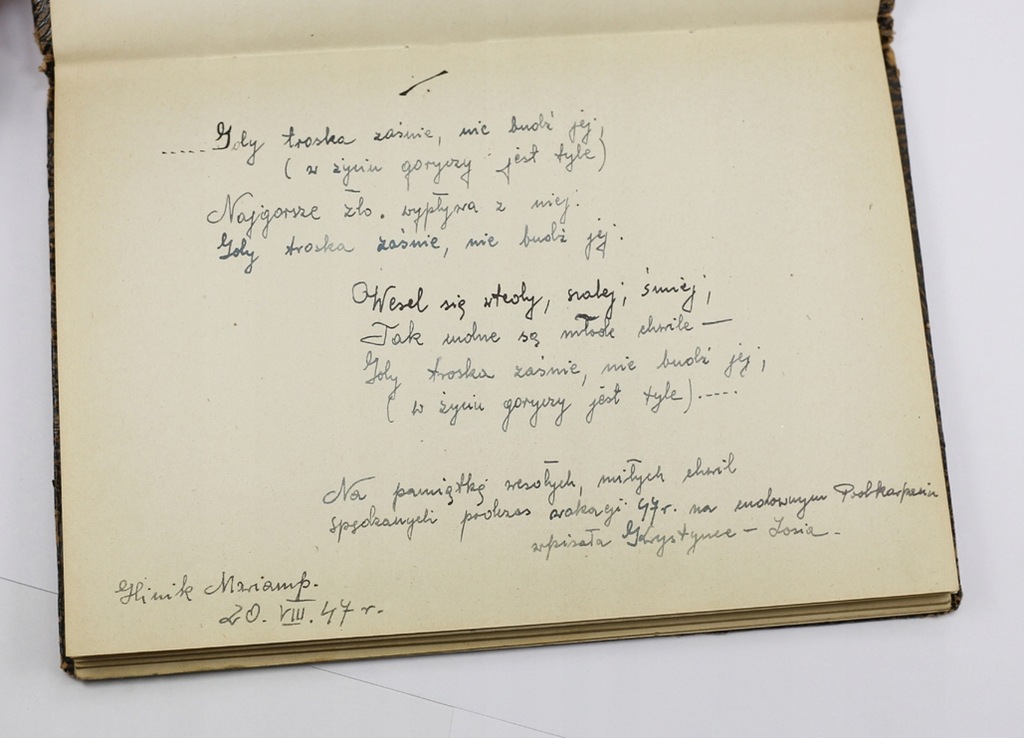 ..... Gdy troska zaśnie, nie budź jej,
( w życiu goryczy jest tyle )
Najgorsze zło. wypływa z niej.
Gdy troska zaśnie, nie budź jej.
Wesel się wtedy, szalej, śmiej,
Tak cudne są młode chwile —
Gdy troska zaśnie, nie budź jej,
( w życiu goryczy jest tyle ).....
Na pamiątkę wesołych, miłych chwil
spędzanych podczas wakacji 47 r. na cudownym Podkarpaciu
wpisała — Zosia -
Glinik Mariamp.
20. VIII. 47 r.